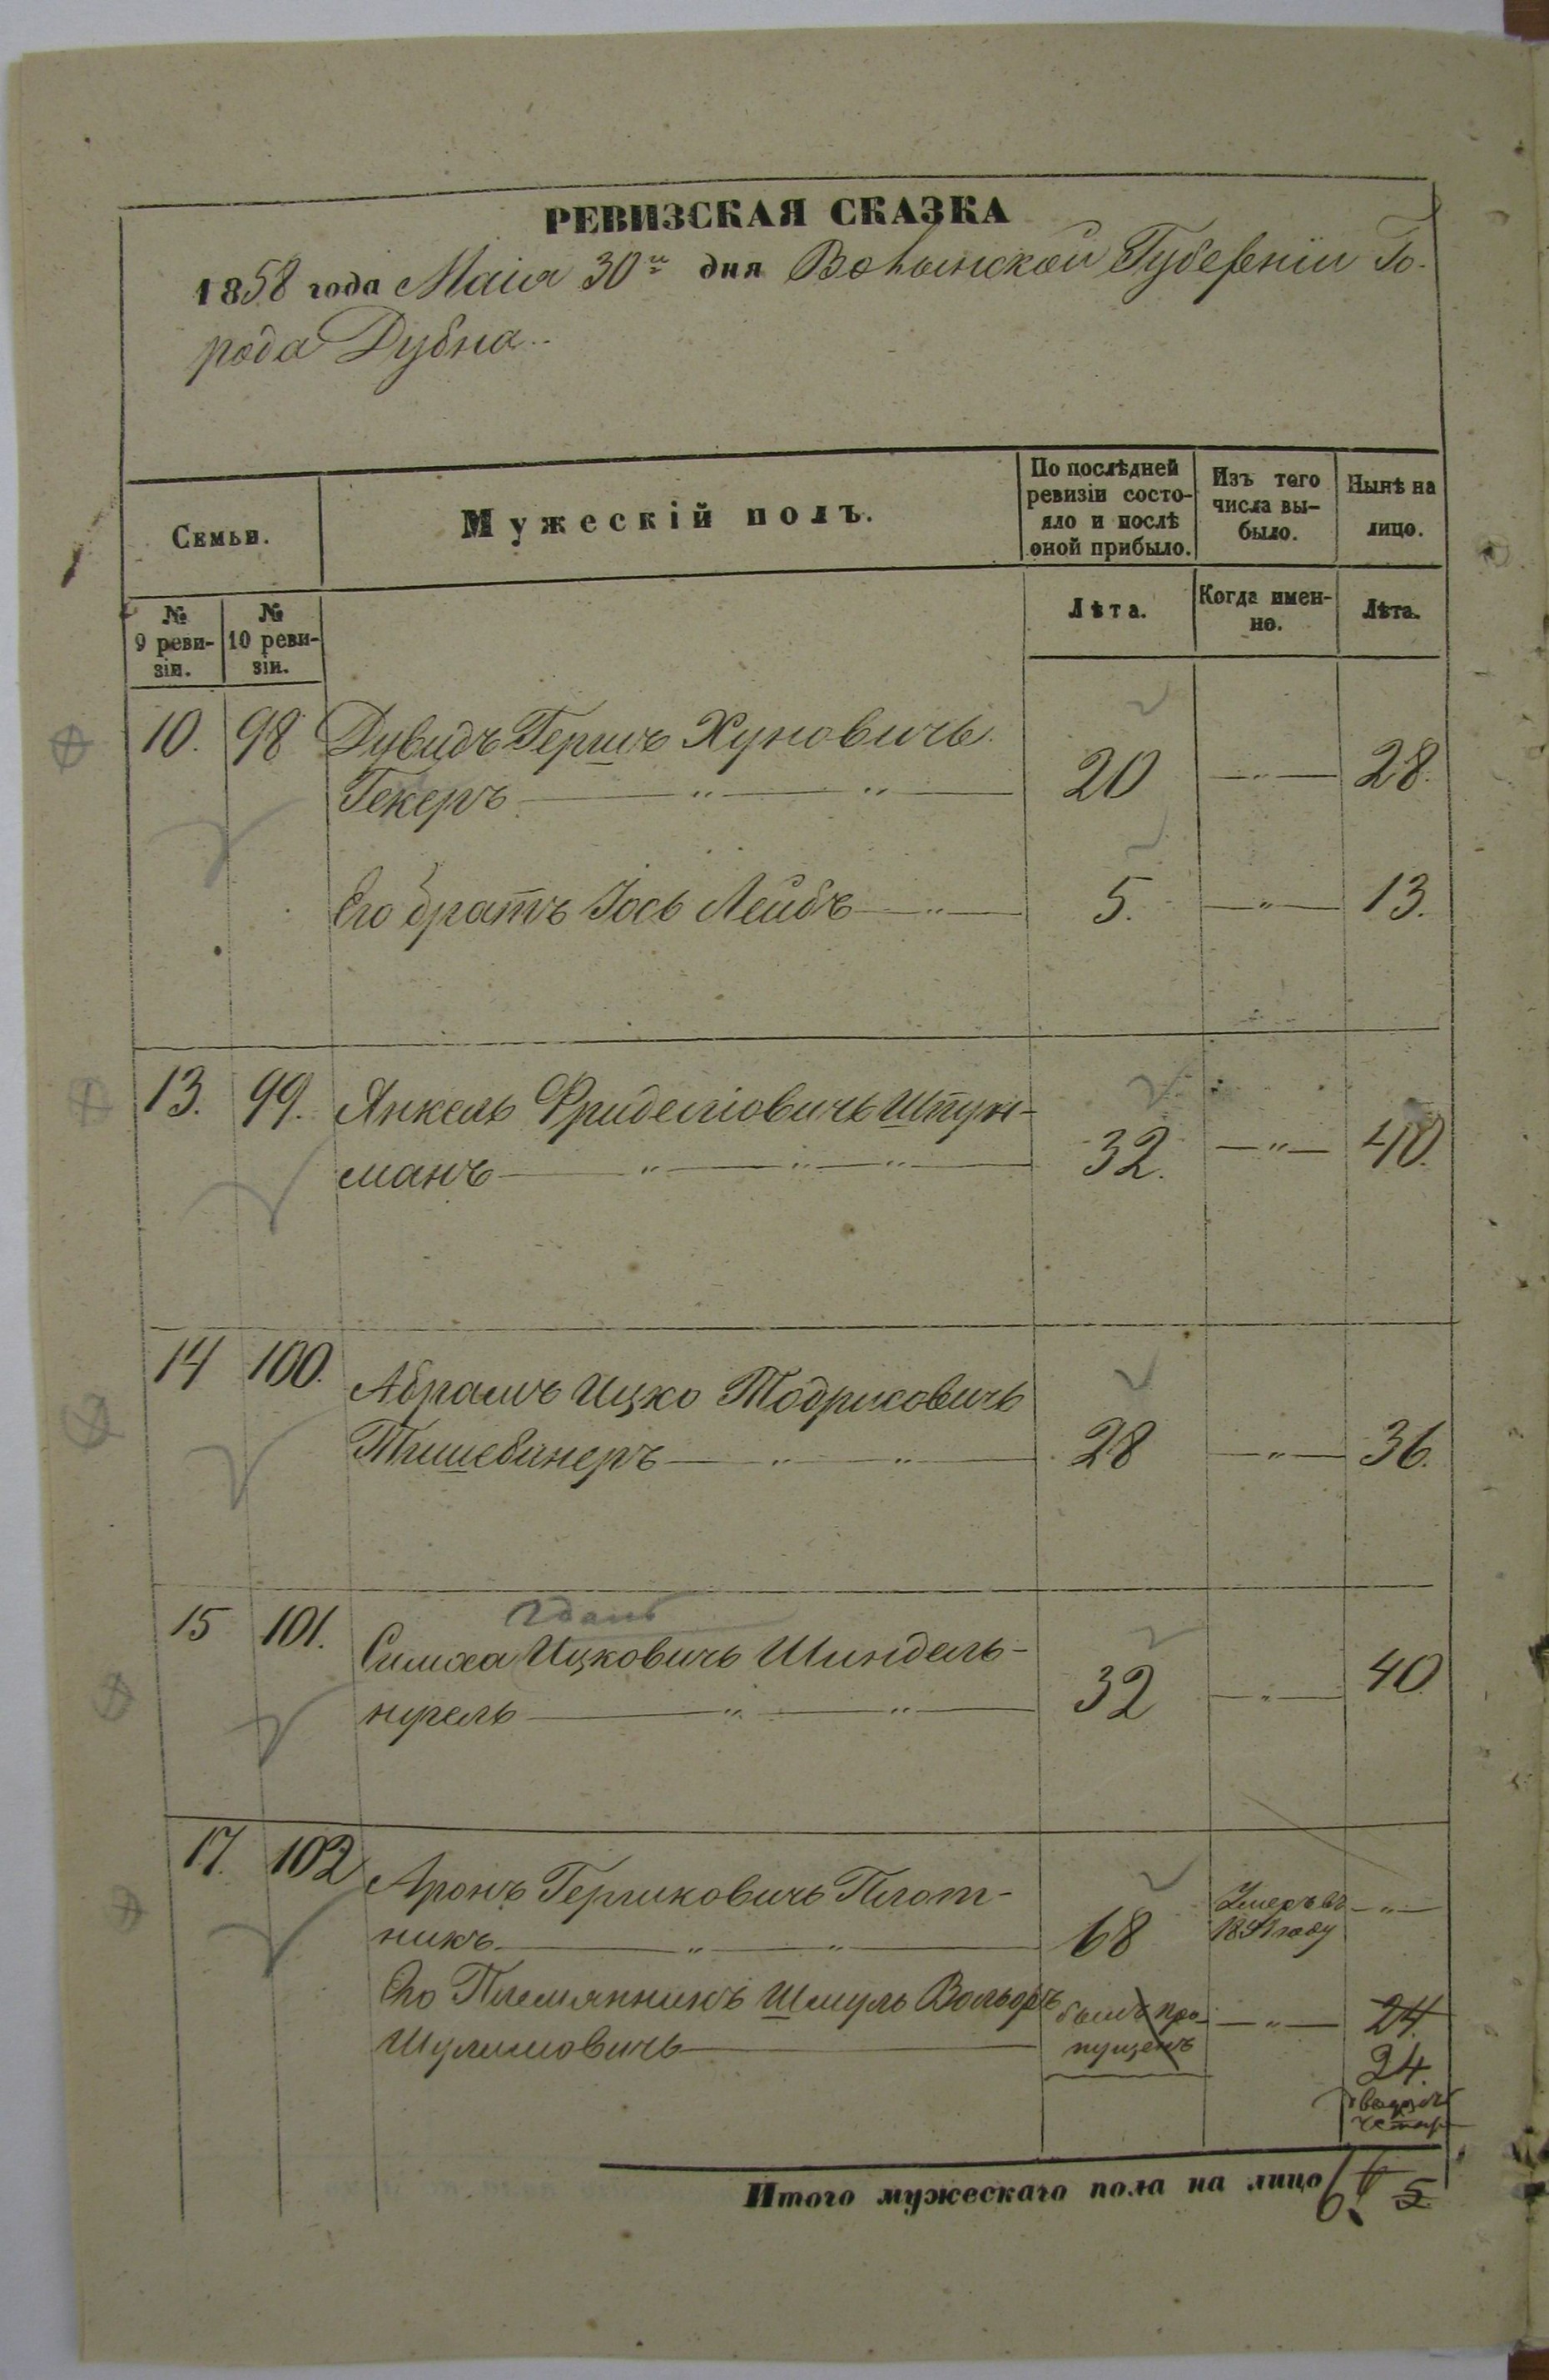 РЕВИЗСКАЯ СКАЗКА
1858 года Маія 30го дня Волынской Губерніи Го-
рода Дубна
Семьи.
Мужескій полъ.
По послѣдней ревизіи состо-
яло и послѣ оной прибыло.
Изъ того числа вы-
было.
Нынѣ на лицо.
№ 9 реви-
зіи.
№ 10 реви-
зіи.
Лѣта.
Когда имен-
но.
Лѣта.
10. 98 Дувидъ Гершъ Хуновичъ
Гекеръ — " — " — 20 — " — 28.
Его братъ Іось Лейбъ — " — 5. — " — 13.
13. 99. Янкель Фриделіовичъ Штун-
манъ — " — " — " — 32. — " — 40.
14 100. Абрамъ Ицко Тодрисовичъ
Тишебинеръ — " — " — 28 — " — 36.
15 101. Симха Ицковичъ Шиндель-
нугель — " — " — 32 — " — 40
17. 102 Аронъ Гершковичъ Плот-
никъ — " — " — 68 Умеръ въ 1851 году — " —
Его Племянникъ Шмуль Вольфъ
Шулимовичъ — былъ про-
пущенъ — " — 24.
24.
двадцать
четыре
Итого мужескаго пола на лицо 6. 5